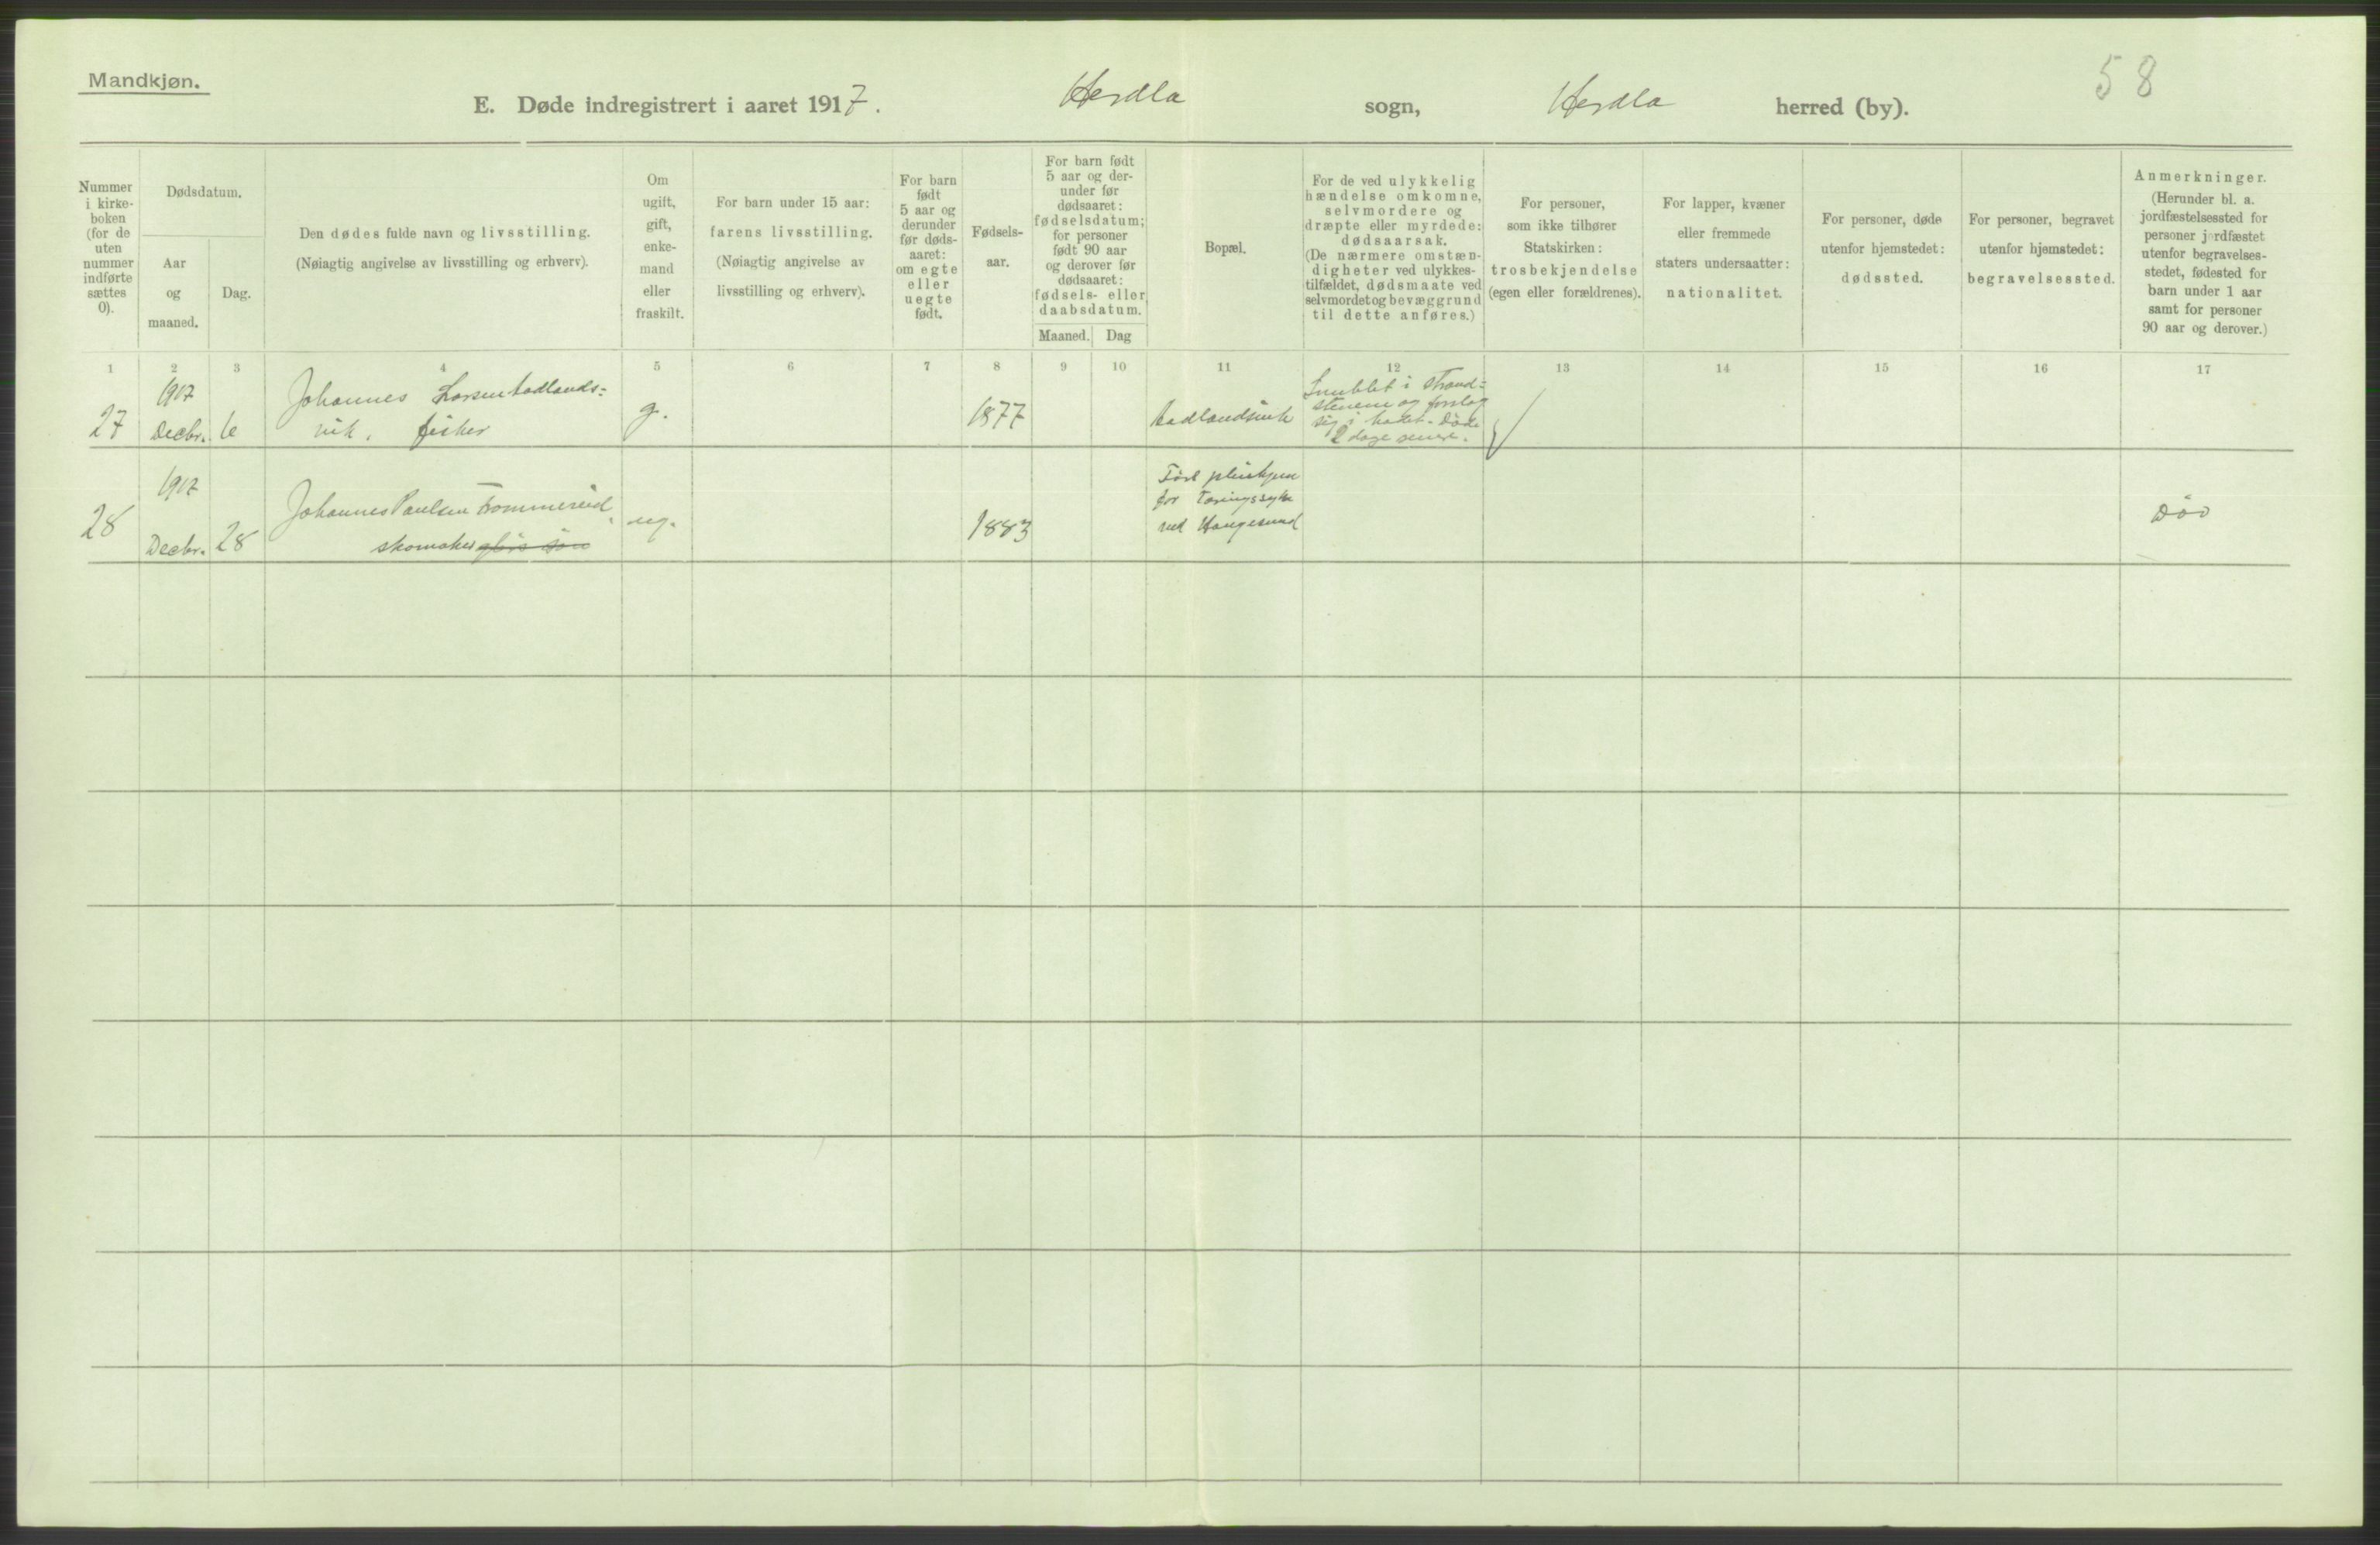 Mandkjøn.
58
E. Døde indregistrert i aaret 1917. Herdla sogn, Herdla herred (by).
Nummer
i kirke-
boken
(for de
uten
nummer
indførte
sættes
0).
Dødsdatum.
Aar
og
maaned.
Dag.
Den dødes fulde navn og livsstilling.
(Nøiagtig angivelse av livsstilling og erhverv).
Om
ugift,
gift,
enke-
mand
eller
fraskilt.
For barn under 15 aar:
farens livsstilling.
(Nøiagtig angivelse av
livsstilling og erhverv).
For barn
født
5 aar og
derunder
før døds-
aaret:
om egte
eller
uegte
født.
Fødsels-
aar.
For barn født
5 aar og der-
under før
dødsaaret:
fødselsdatum;
for personer
født 90 aar
og derover før
dødsaaret:
fødsels- eller
daabsdatum.
Maaned. Dag
Bopæl.
For de ved ulykkelig
hændelse omkomne,
selvmordere og
dræpte eller myrdede:
dødsaarsak.
(De nærmere omstæn-
digheter ved ulykkes-
tilfældet, dødsmaate ved
selvmordet og bevæggrund
til dette anføres.)
For personer,
som ikke tilhører
Statskirken:
trosbekjendelse
(egen eller forældrenes).
For lapper, kvæner
eller fremmede
staters undersaatter:
nationalitet.
For personer, døde
utenfor hjemstedet:
dødssted.
For personer, begravet
utenfor hjemstedet:
begravelsessted.
Anmerkninger.
(Herunder bl. a.
jordfæstelsessted for
personer jordfæstet
utenfor begravelses-
stedet, fødested for
barn under 1 aar
samt for personer
90 aar og derover.)
1 2 3 4 5 6 7 8 9 10 11 12 13 14 15 16 17
27
1917
Decbr. 6
Johannes Larsen Aadlands=
vik, fisker
g.
1877
Aadlandsvik
Snublet i strand=
stenene og forslog
sig i hodet. Døde
2 dage senere.
28
1917
Decbr. 28
Johannes Paulsen Frommereid,
skomaker
ug.
1883
for Tæringssyke
ved Haugesund
Død